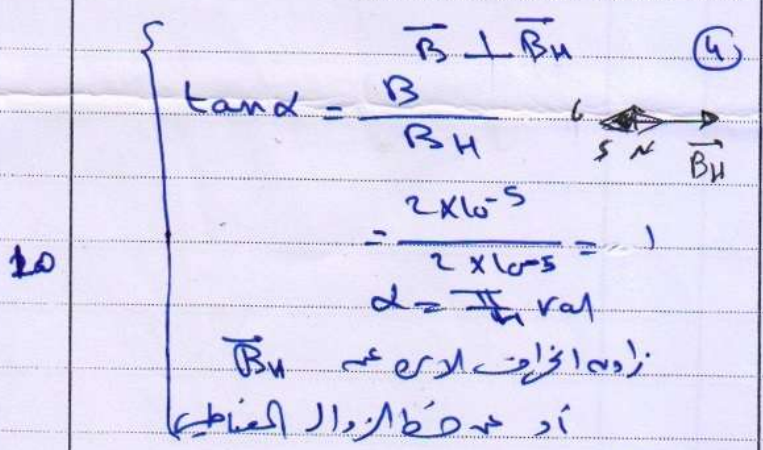 B ⊥ B_H ④
tan α = B / B_H
S N B_H
= 2×10^-5 / 2×10^-5 = 1
10
α = π/4 rad
زاوية انحراف الابرة عن B_H
أو عن خط الزوال المغناطيسي